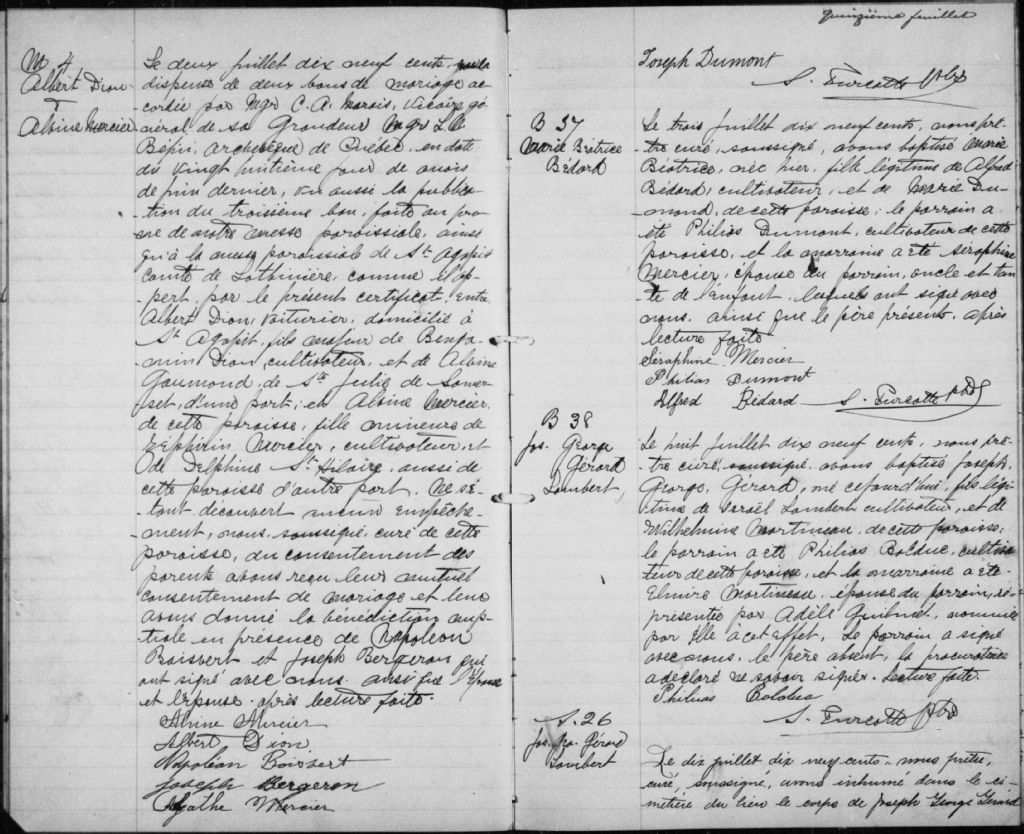 M 4
Albert Dion
&
Alvine Mercier
Le deux juillet dix neuf cents, vu la
dispense de deux bans de mariage ac-
cordée par Mgr C. A. Marois, Vicaire gé-
néral, de sa Grandeur Mgr L. N.
Bégin, archevêque de Québec, en date
du vingt huitième jour de mois
de juin dernier, vu aussi la publica-
tion du troisième ban, faite au pro-
ne de notre messe paroissiale, ainsi
qu'à la messe paroissiale de St Agapit
comté de Lotbinière, comme il ap-
pert, par le présent certificat, entre
Albert Dion, voiturier, domicilié à
St Agapit, fils majeur de Benja-
min Dion, cultivateur, et de Alvine
Gaumond, de Ste Julie de Somer-
set, d'une part; et Alvine Mercier
de cette paroisse, fille mineure de
Zéphirin Mercier, cultivateur, et
de Delphine St Hilaire, aussi de
cette paroisse d'autre part. Ne s'é-
tant découvert aucun empêche-
ment, nous, soussigné, curé de cette
paroisse, du consentement des
parents avons reçu leur mutuel
consentement de mariage et leur
avons donné la bénédiction nup-
tiale en présence de Napoléon
Boisvert et Joseph Bergeron qui
ont signé avec nous ainsi que l'Epoux
et l'épouse. après lecture faite.
Alvine Mercier
Albert Dion
Napoléan Boisvert
Joseph Bergeron
Agathe Mercier
quinzième feuillet
Joseph Dumont
S. Turcotte Ptre
B 37
Marie Béatrice
Bédard
Le trois juillet dix neuf cents, nous prê-
tre curé, soussigné, avons baptisé Marie
Béatrice, née hier, fille légitime de Alfred
Bédard, cultivateur, et de Marie Du-
mond, de cette paroisse; le parrain a
été Philias Dumont, cultivateur de cette
paroisse, et la marraine a été Séraphine
Mercier, épouse du parrain, oncle et tan-
te de l'enfant, lesquels ont signé avec
nous, ainsi que le père présent, après
lecture faite
Séraphine Mercier
Philias Dumont
Alfred Bédard S. Turcotte Ptre
B 38
Jos. George
Gérard
Lambert
Le huit juillet dix neuf cents, nous prê-
tre curé, soussigné, avons baptisé Joseph,
George, Gérard, né ce jourd'hui, fils légi-
time de Israël Lambert cultivateur, et de
Wilhelmine Martineau, de cette paroisse;
le parrain a été Philias Bolduc, cultiva-
teur de cette paroisse, et la marraine a été
Elmire Martineau, épouse du parrain, re-
présentée par Adèle Guilmet, nommée
par elle à cet effet, Le parrain a signé
avec nous, le père absent, la procuratrice
a déclaré ne savoir signer. Lecture faite.
Philias Bolduc
S. Turcotte Ptre
S. 26
Jos. Geo. Gérard
Lambert
Le dix juillet dix neuf cents - nous prêtre,
curé, soussigné, avons inhumé dans le ci-
metière du lieu le corps de Joseph George Gérard